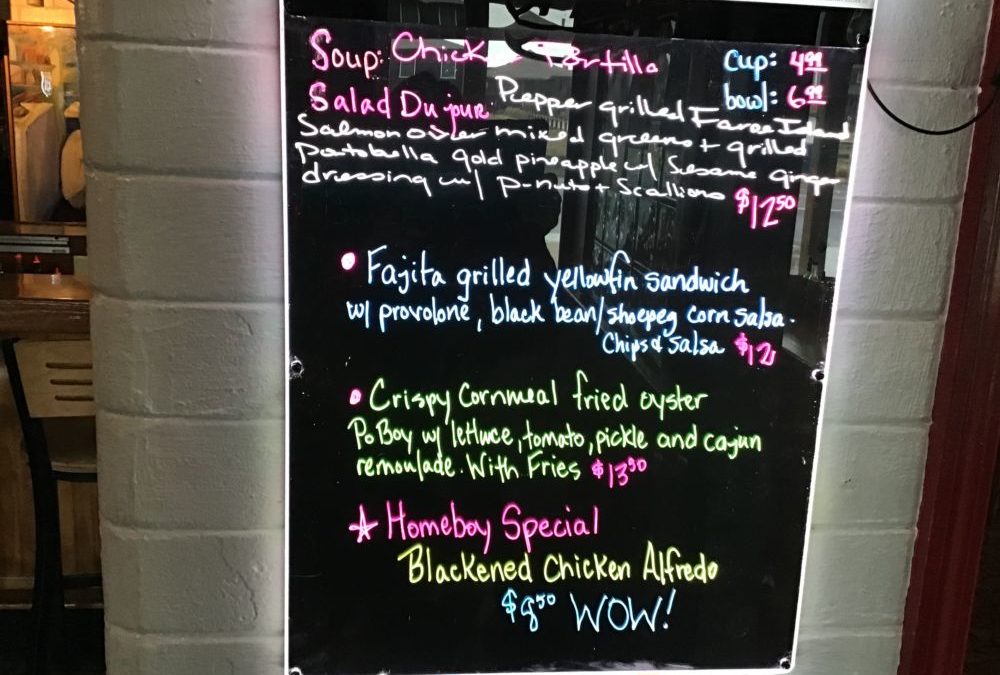 Soup: Chicken Tortilla cup: 4.99
bowl: 6.99
Salad Du jour: Pepper grilled Faroe Island
Salmon over mixed greens + grilled
Portobella gold pineapple w/ Sesame ginger
dressing w/ P-nuts + Scallions $12.50
• Fajita grilled yellowfin sandwich
w/ provolone, black bean/shoepeg corn salsa.
Chips & Salsa $12
• Crispy Cornmeal fried oyster
Po Boy w/ lettuce, tomato, pickle and cajun
remoulade. With Fries $13.50
☆ Homeboy Special
Blackened Chicken Alfredo
$8.50 WOW!